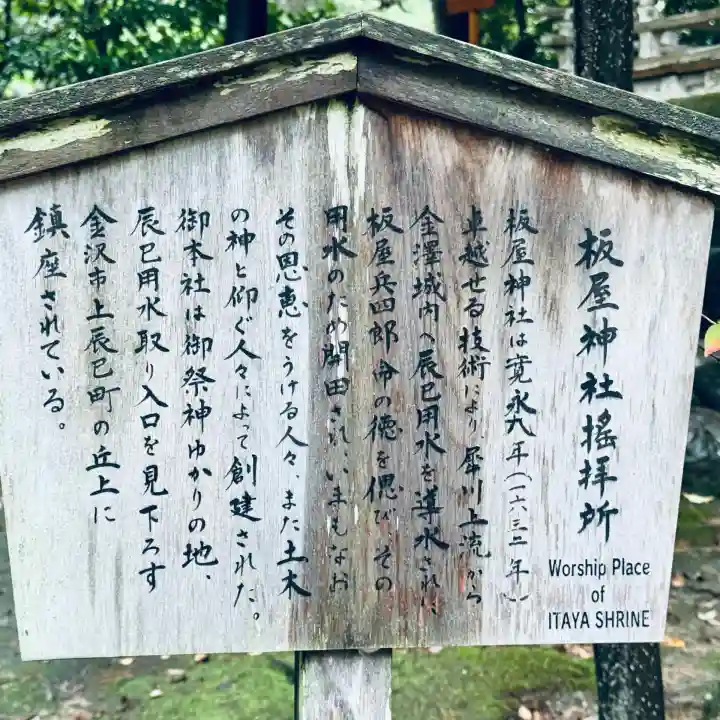 板屋神社揺拝所
Worship Place
of
ITAYA SHRINE
板屋神社は寛永九年(一六三二年)
卓越せる技術により、犀川上流から
金澤城内へ辰巳用水を導水された、
板屋兵四郎命の徳を偲び、その
用水のため開田され、いまもなお
その恩恵をうける人々、また土木
の神と仰ぐ人々によって創建された。
御本社は御祭神ゆかりの地、
辰巳用水取り入口を見下ろす
金沢市上辰巳町の丘上に
鎮座されている。